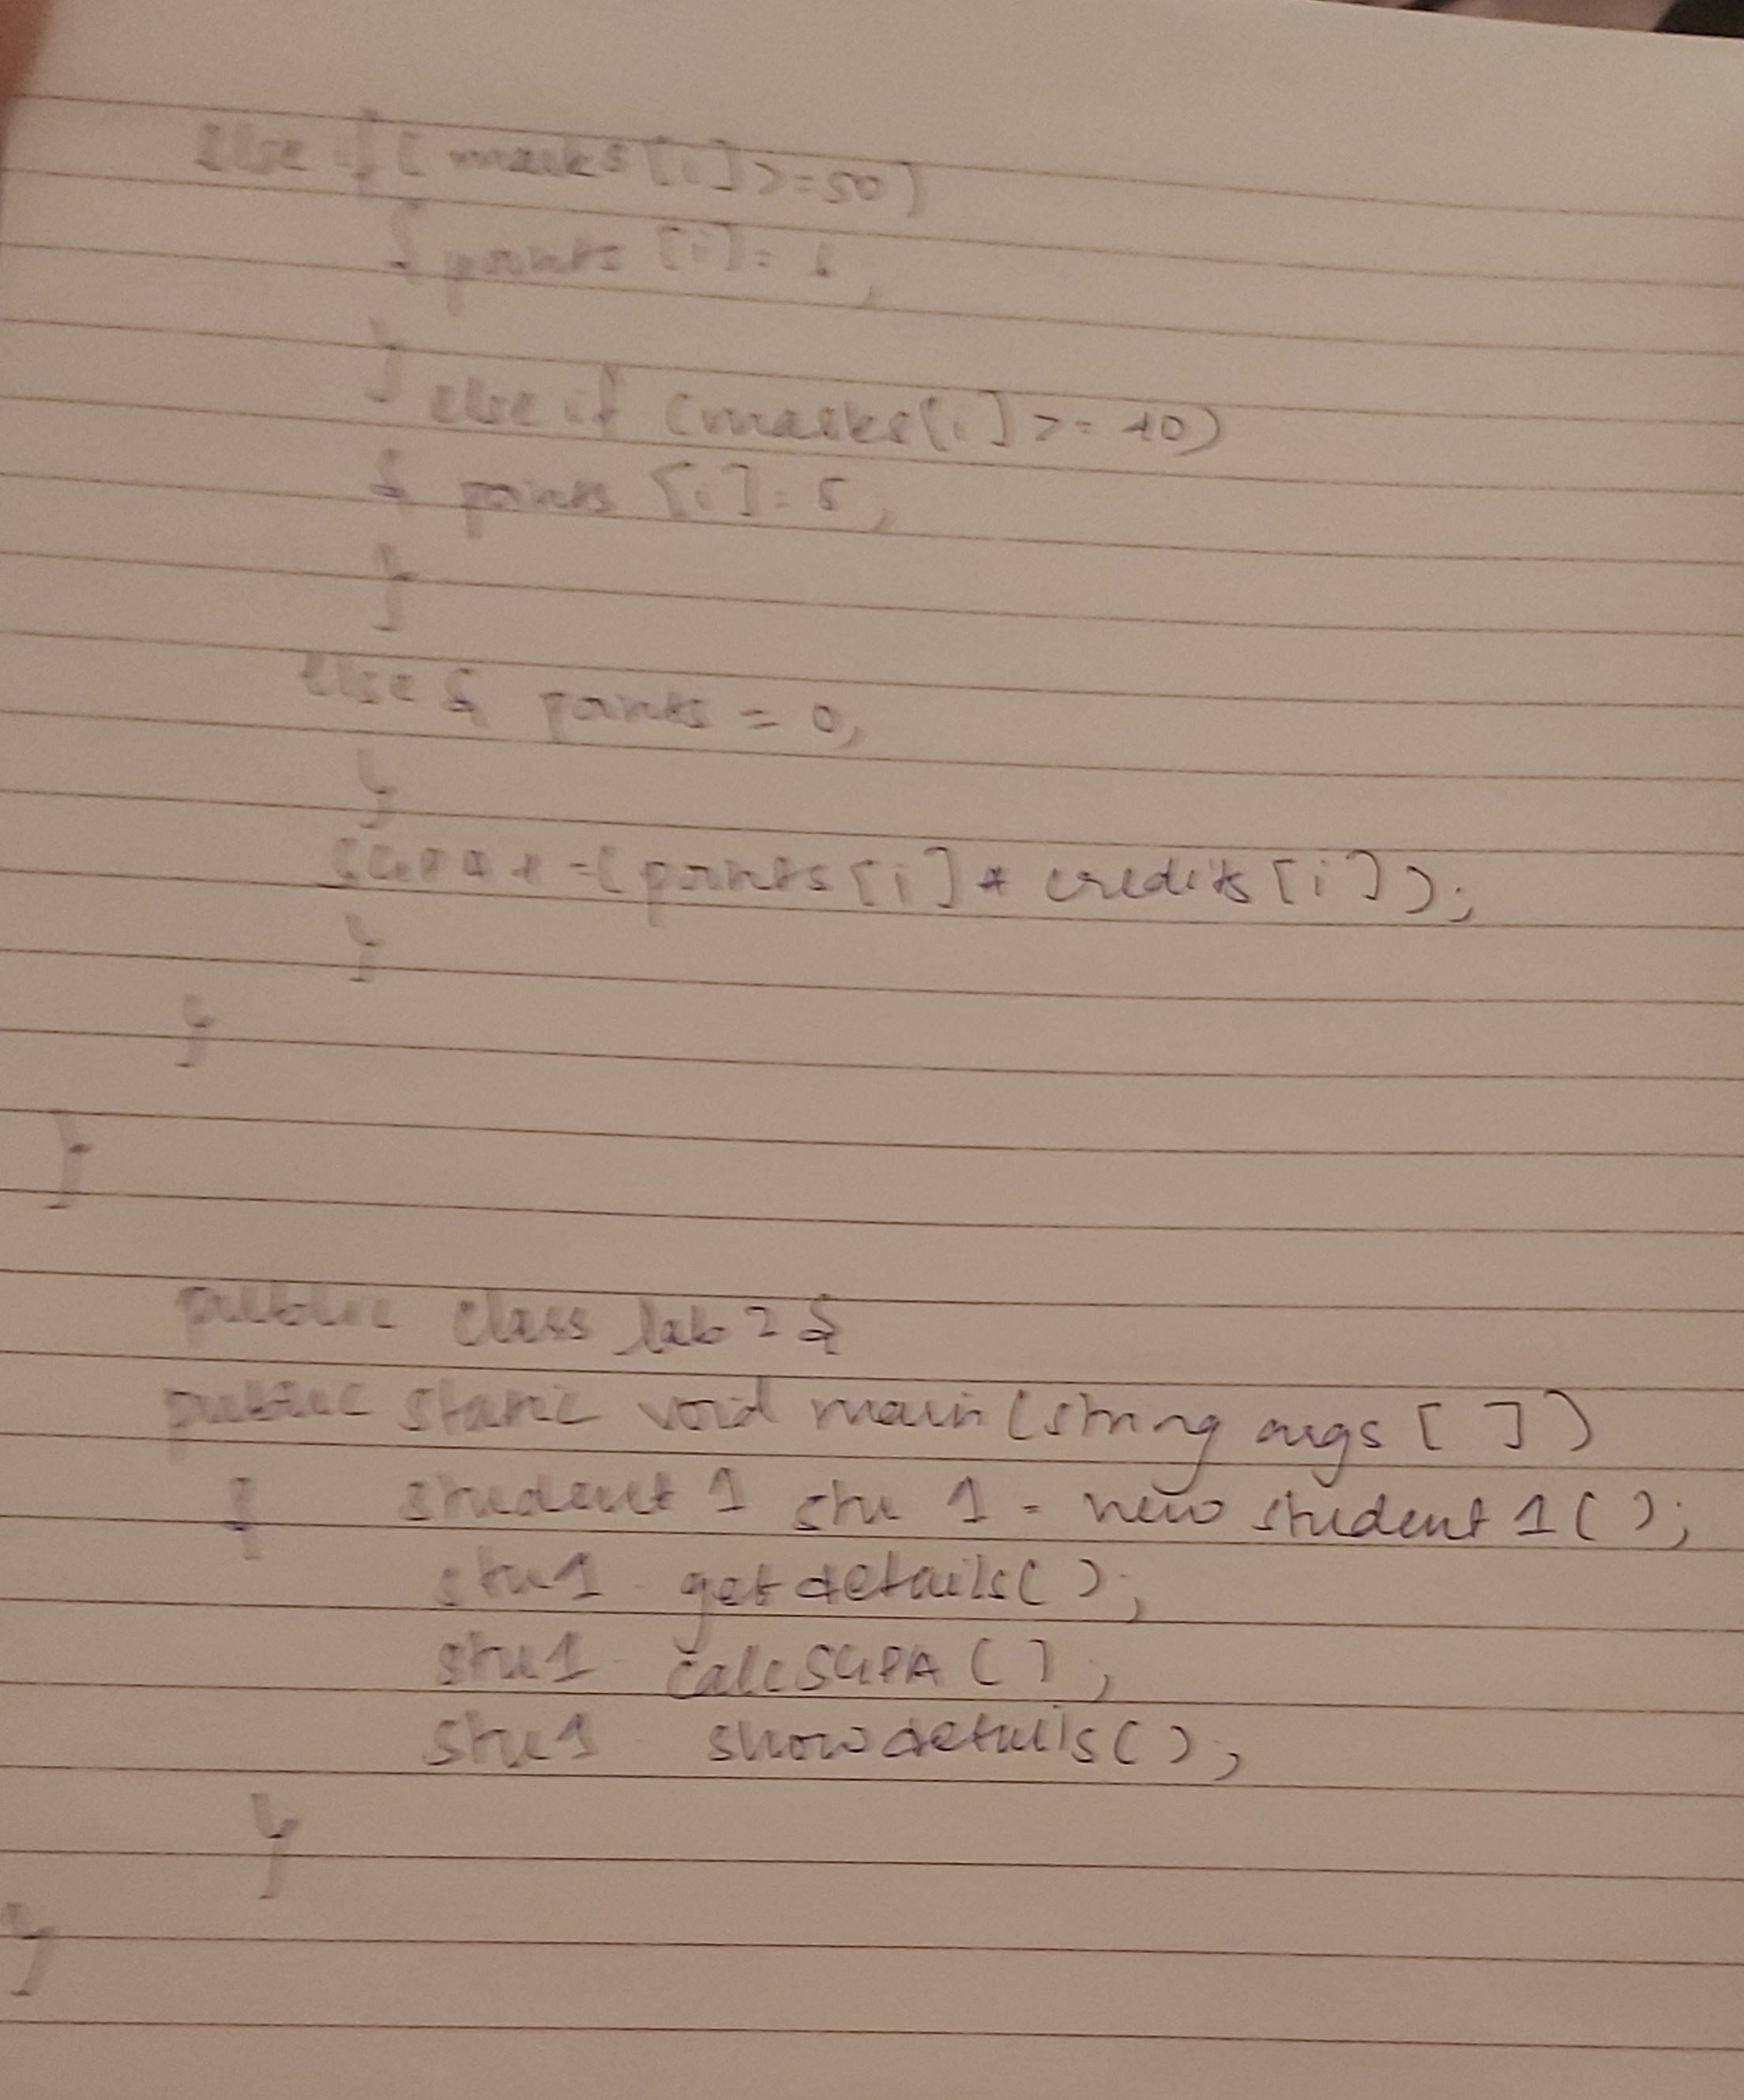 else if ( marks [i] >= 50)
{ points [i] = 6 ;
}
else if (marks[i] >= 40)
{ points [i] = 5 ;
}
else { points = 0;
}
SGPA + = ( points [i] * credits [i] );
}
}
}
public class lab 2 {
public static void main (string args [ ] )
{ student 1 stu 1 = new student 1 ( );
stu1 . getdetails( );
stu1 . calcSGPA ( ) ;
stu1 . showdetails( );
}
}